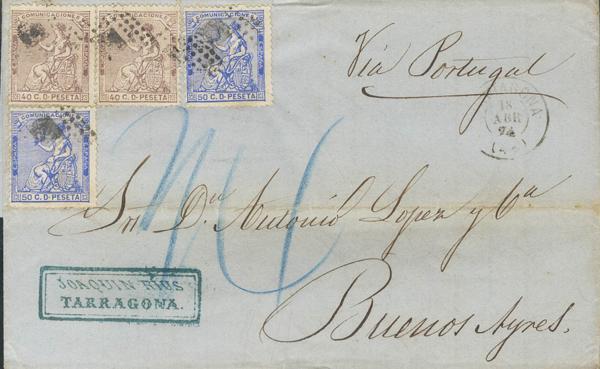 COMUNICACIONES COMUNICACIONES COMUNICACIONES
ESPAÑA ESPAÑA ESPAÑA
40 C. D. PESETA 40 C. D. PESETA 50 C. D. PESETA
COMUNICACIONES
ESPAÑA
50 C. D. PESETA
Via Portugal
18
ABR
74
Sr. Dn. Antonio Lopez y Ca
Buenos Ayres.
JOAQUIN RIUS
TARRAGONA.